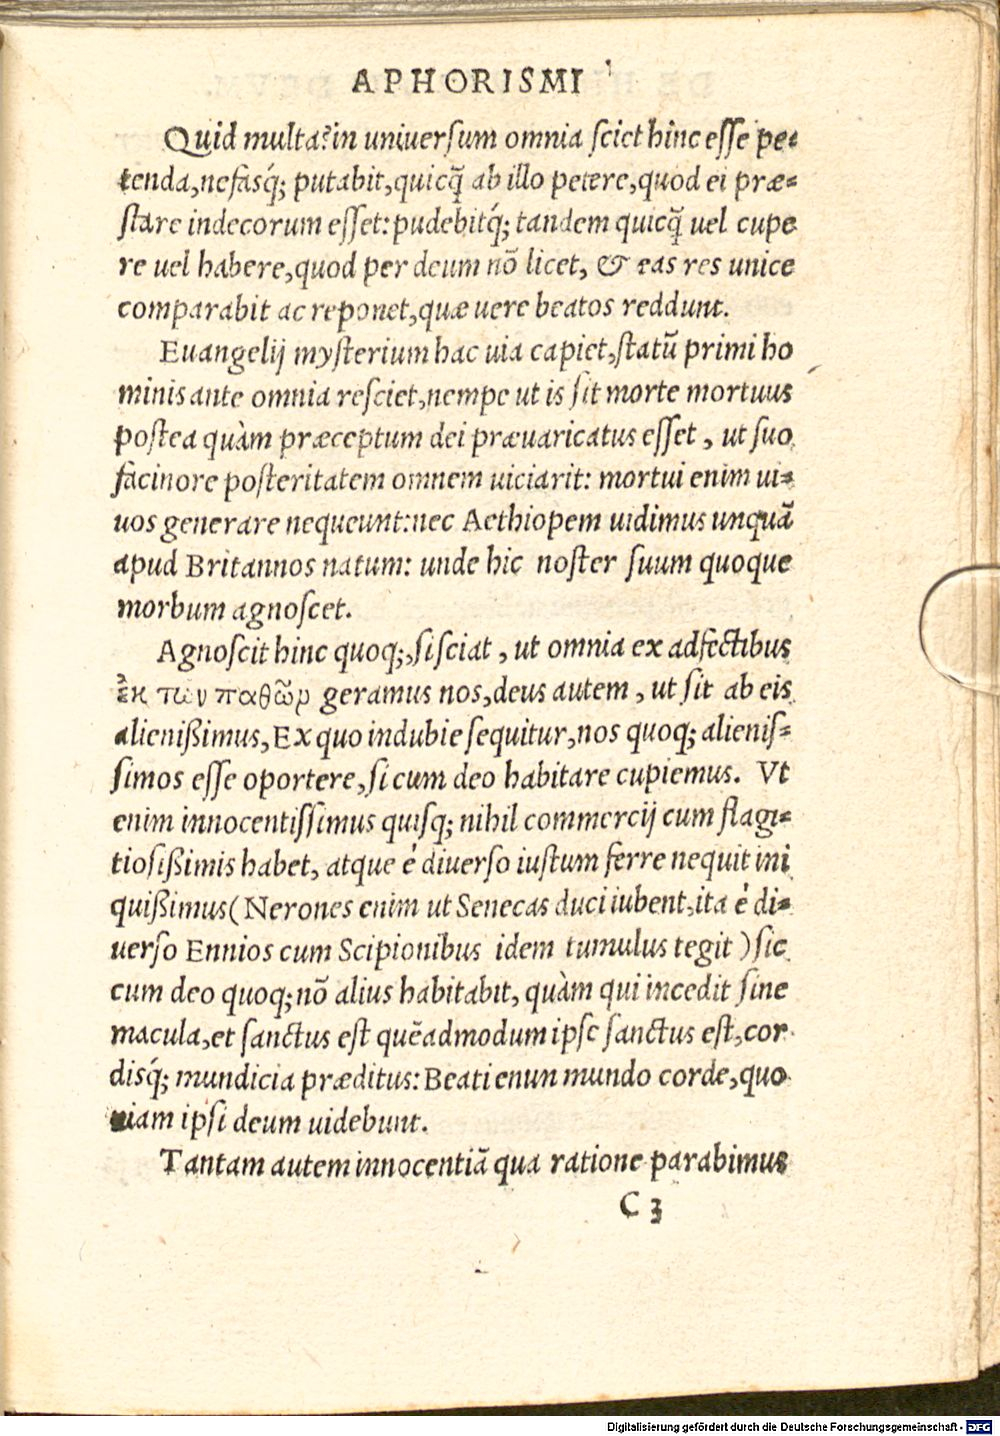 APHORISMI
Quid multa? in uniuersum omnia sciet hinc esse pe-
tenda, nefasq́; putabit, quicq̃ ab illo petere, quod ei præ-
stare indecorum esset: pudebitq́; tandem quicq̃ uel cupe
re uel habere, quod per deum nõ licet, & eas res unice
comparabit ac reponet, quæ uere beatos reddunt.
Euangelij mysterium hac uia capiet, statũ primi ho
minis ante omnia resciet, nempe ut is sit morte mortuus
postea quàm præceptum dei præuaricatus esset, ut suo
facinore posteritatem omnem uiciarit: mortui enim ui-
uos generare nequeunt: nec Aethiopem uidimus unquã
apud Britannos natum: unde hic noster suum quoque
morbum agnoscet.
Agnoscit hinc quoq;, si sciat, ut omnia ex adfectibus
ἐκ τῶν παθῶρ geramus nos, deus autem, ut sit ab eis
alienißimus, Ex quo indubie sequitur, nos quoq; alienis-
simos esse oportere, si cum deo habitare cupiemus. Vt
enim innocentissimus quisq; nihil commercij cum flagi-
tiosißimis habet, atque é diuerso iustum ferre nequit ini
quißimus (Nerones enim ut Senecas duci iubent, ita é di-
uerso Ennios cum Scipionibus idem tumulus tegit) sic
cum deo quoq; nõ alius habitabit, quàm qui incedit sine
macula, et sanctus est quẽadmodum ipse sanctus est, cor
disq́; mundicia præditus: Beati enun mundo corde, quo
niam ipsi deum uidebunt.
Tantam autem innocentiã qua ratione parabimus
C 3
Digitalisierung gefördert durch die Deutsche Forschungsgemeinschaft - DFG